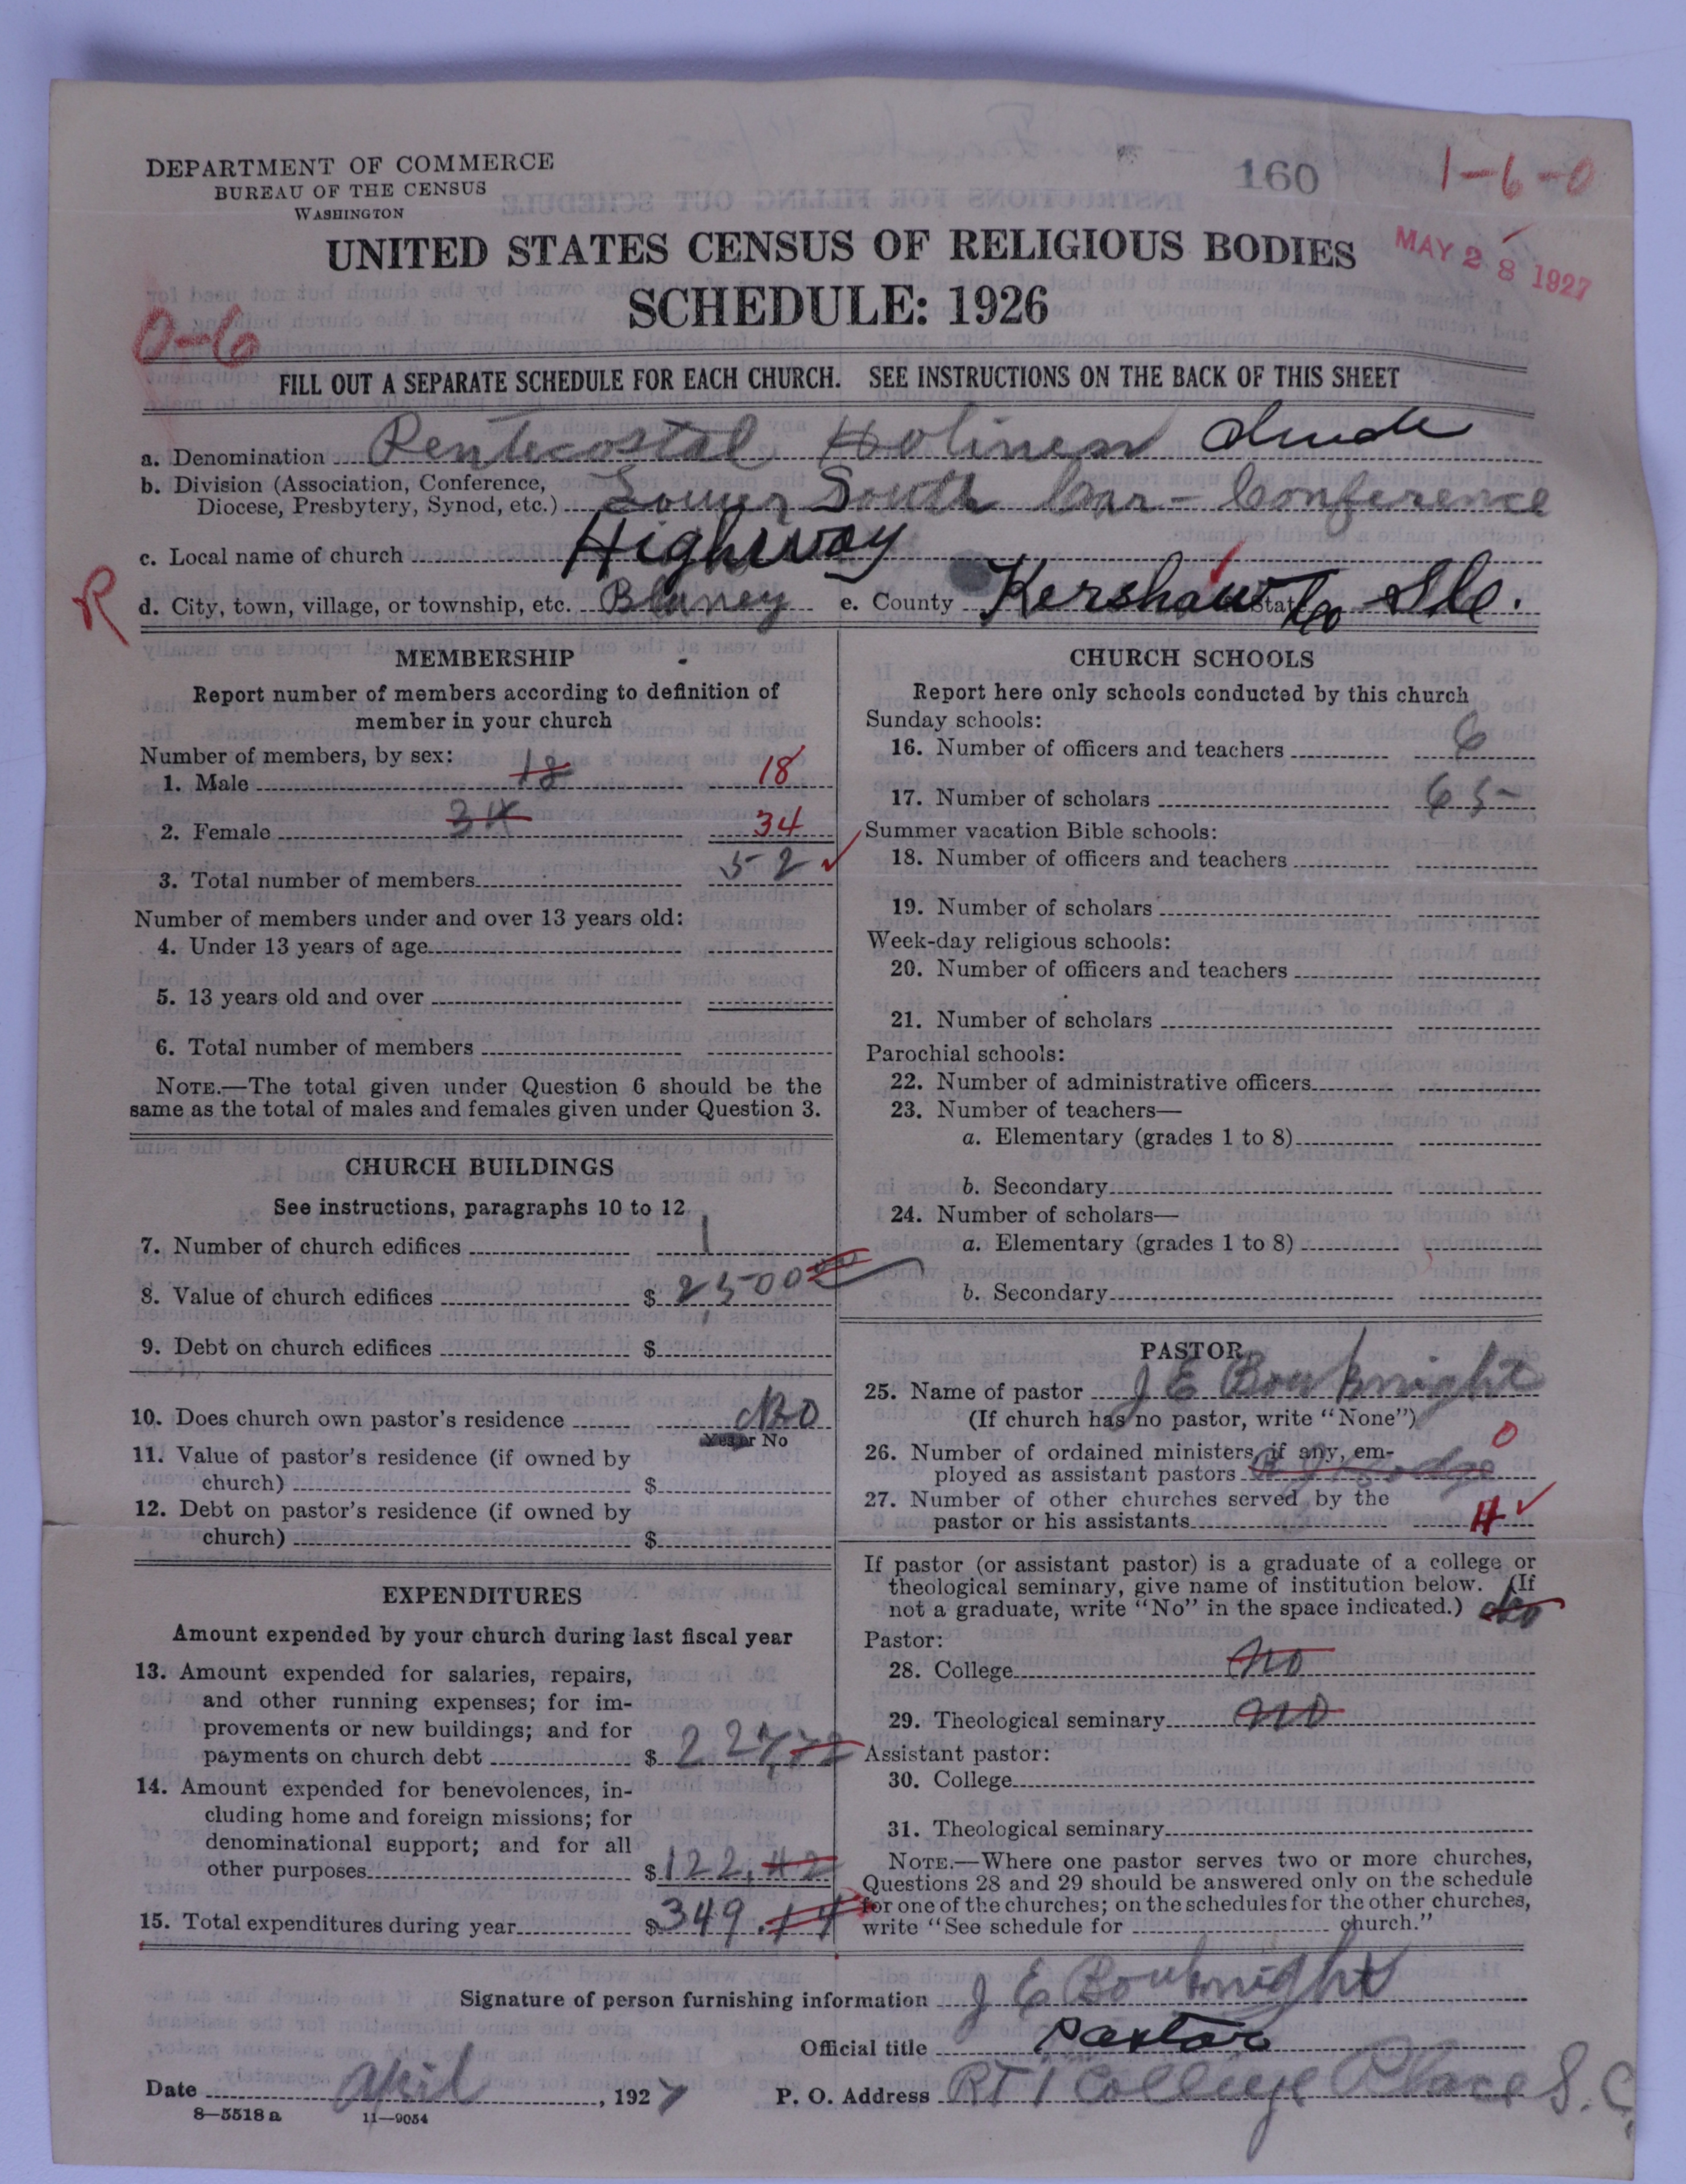 DEPARTMENT OF COMMERCE
BUREAU OF THE CENSUS
WASHINGTON
160
1-6-0
UNITED STATES CENSUS OF RELIGIOUS BODIES
MAY 28 1927
SCHEDULE: 1926
0-6
FILL OUT A SEPARATE SCHEDULE FOR EACH CHURCH. SEE INSTRUCTIONS ON THE BACK OF THIS SHEET
a. Denomination Pentecostal Holiness
b. Division (Association, Conference,
Diocese, Presbytery, Synod, etc.) Lower South Car- Conference
c. Local name of church Highway
R
d. City, town, village, or township, etc. Blaney e. County Kershaw Co State S.C.
MEMBERSHIP
Report number of members according to definition of
member in your church
Number of members, by sex:
1. Male 18 18
2. Female 34 34
3. Total number of members 52
Number of members under and over 13 years old:
4. Under 13 years of age
5. 13 years old and over
6. Total number of members
NOTE.—The total given under Question 6 should be the
same as the total of males and females given under Question 3.
CHURCH BUILDINGS
See instructions, paragraphs 10 to 12
7. Number of church edifices 1
8. Value of church edifices $ 2,500 00
9. Debt on church edifices $
10. Does church own pastor's residence No
Yes or No
11. Value of pastor's residence (if owned by
church) $
12. Debt on pastor's residence (if owned by
church) $
EXPENDITURES
Amount expended by your church during last fiscal year
13. Amount expended for salaries, repairs,
and other running expenses; for im-
provements or new buildings; and for
payments on church debt $ 227,72
14. Amount expended for benevolences, in-
cluding home and foreign missions; for
denominational support; and for all
other purposes $ 122.42
15. Total expenditures during year $ 349.14
CHURCH SCHOOLS
Report here only schools conducted by this church
Sunday schools:
16. Number of officers and teachers 6
17. Number of scholars 65
Summer vacation Bible schools:
18. Number of officers and teachers
19. Number of scholars
Week-day religious schools:
20. Number of officers and teachers
21. Number of scholars
Parochial schools:
22. Number of administrative officers
23. Number of teachers—
a. Elementary (grades 1 to 8)
b. Secondary
24. Number of scholars—
a. Elementary (grades 1 to 8)
b. Secondary
PASTOR
25. Name of pastor J E Bouknight
(If church has no pastor, write "None")
26. Number of ordained ministers, if any, em-
ployed as assistant pastors 0
27. Number of other churches served by the
pastor or his assistants 4
If pastor (or assistant pastor) is a graduate of a college or
theological seminary, give name of institution below. (If
not a graduate, write "No" in the space indicated.) No
Pastor:
28. College No
29. Theological seminary No
Assistant pastor:
30. College
31. Theological seminary
NOTE.—Where one pastor serves two or more churches,
Questions 28 and 29 should be answered only on the schedule
for one of the churches; on the schedules for the other churches,
write "See schedule for church."
Signature of person furnishing information J E Bouknight
Official title Pastor
Date April, 1927 P. O. Address RT 1 College Place S.C.
8—5518 a 11—9054